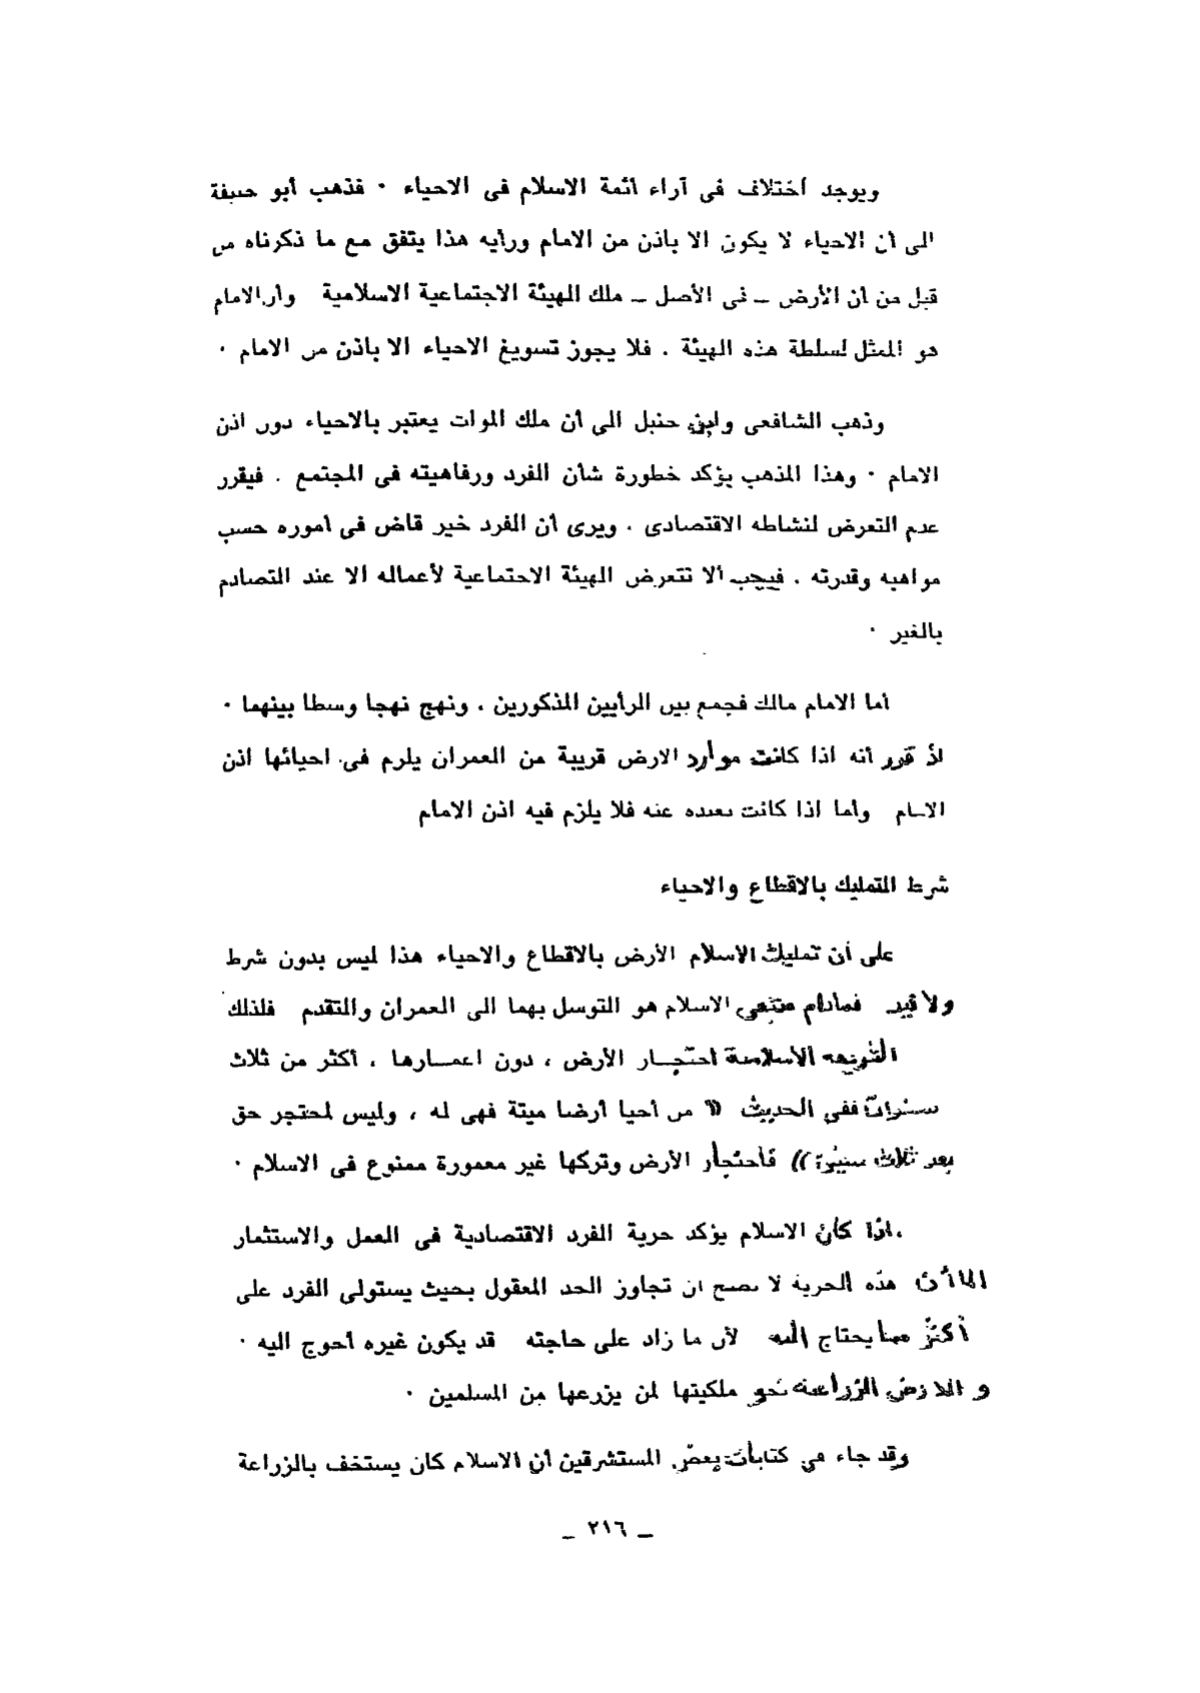 ويوجد اختلاف فى آراء ائمة الاسلام فى الاحياء ٠ فذهب أبو حنيفة
الى أن الاحياء لا يكون الا باذن من الامام ورايه هذا يتفق مع ما ذكرناه من
قبل من أن الأرض ــ فى الأصل ــ ملك الهيئة الاجتماعية الاسلامية وأن الامام
هو الممثل لسلطة هذه الهيئة . فلا يجوز تسويغ الاحياء الا باذن من الامام ٠
وذهب الشافعى وابن حنبل الى أن ملك الموات يعتبر بالاحياء دون اذن
الامام ٠ وهذا المذهب يؤكد خطورة شأن الفرد ورفاهيته فى المجتمع . فيقرر
عدم التعرض لنشاطه الاقتصادى . ويرى أن الفرد خير قاض فى اموره حسب
مواهبه وقدرته . فيجب ألا تتعرض الهيئة الاجتماعية لأعماله الا عند التصادم
بالغير ٠
أما الامام مالك فجمع بين الرأيين المذكورين . ونهج نهجا وسطا بينهما ٠
اذ قرر أنه اذا كانت موارد الارض قريبة من العمران يلزم فى احيائها اذن
الامام وأما اذا كانت بعيدة عنه فلا يلزم فيه اذن الامام
شرط التمليك بالاقطاع والاحياء
على أن تمليك الاسلام الأرض بالاقطاع والاحياء هذا ليس بدون شرط
ولا قيد فمادام الاسلام هو التوسل بهما الى العمران والتقدم فلذلك
الاسلامية احتجــار الأرض ، دون اعمــارها ، أكثر من ثلاث
سنوات ففى الحديث « من أحيا أرضا ميتة فهى له ، وليس لمحتجر حق
بعد ثلاث سنين » فاحتجار الأرض وتركها غير معمورة ممنوع فى الاسلام ٠
اذا كان الاسلام يؤكد حرية الفرد الاقتصادية فى العمل والاستثمار
الا أن هذه الحرية لا يصح ان تجاوز الحد المعقول بحيث يستولى الفرد على
أكثر مما يحتاج اليه لأن ما زاد على حاجته قد يكون غيره أحوج اليه ٠
الزراعية ملكيتها لمن يزرعها من المسلمين ٠
وقد جاء فى كتابات بعض المستشرقين أن الاسلام كان يستخف بالزراعة
ــ ٢١٦ ــ